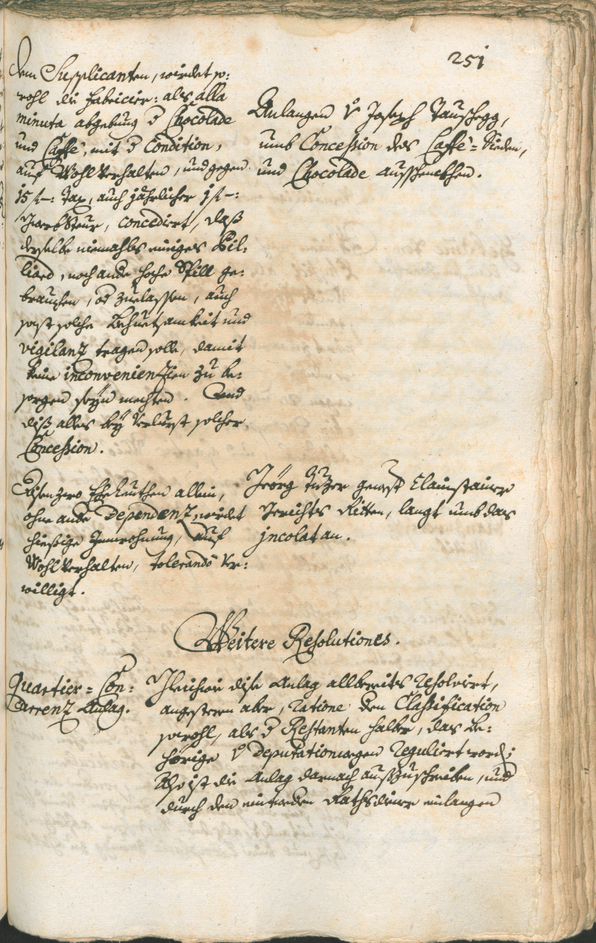 251
dem Supplicanten, würdet so:
wohl die fabricier: als alla
minuta abgebung d Chocolade
und Caffe, mit d Condition,
auf Wohl verhalten, und gegen
15 f –: Tax, auch jährlicher 1 f –:
Gwerbsteur, concedirt, daß
derselbe niemahls einiges Bil,
liard, noch ande hoche Spill ge:
brauchen, od zuelassen, auch
sonst solche Behuetsamkeit und
vigilanz tragen solle, damit
keine inconvenienzien zu be:
sorgen seyn mechten. Und
diß alles bey Verlurst solcher
Concession.
Anlangen V Joseph Tauschegg,
umb Concession des Caffe=Siden,
und Chocolade ausschenckhen.
Eheleuthen allein,
ohne ande Dependenz, würdet
hiesige Inwohnung, auf
Wohl verhalten, tolerando ver:
willigt.
Jeörg gewest
Gerichts Ritten, langt umb das
jncolat an.
Weitere Resolutiones.
Quartier=Con:
currenz Anlag.
Gleichen dise Anlag allbereits resolvirt,
angestern aber, ratione den Classification
sowohl, als d Restanten halber, das be:
hörige V Deputations wegen reguliert word;
Also ist die Anlag darnach auszuschreiben, und
durch den Rathsdiener einlangen